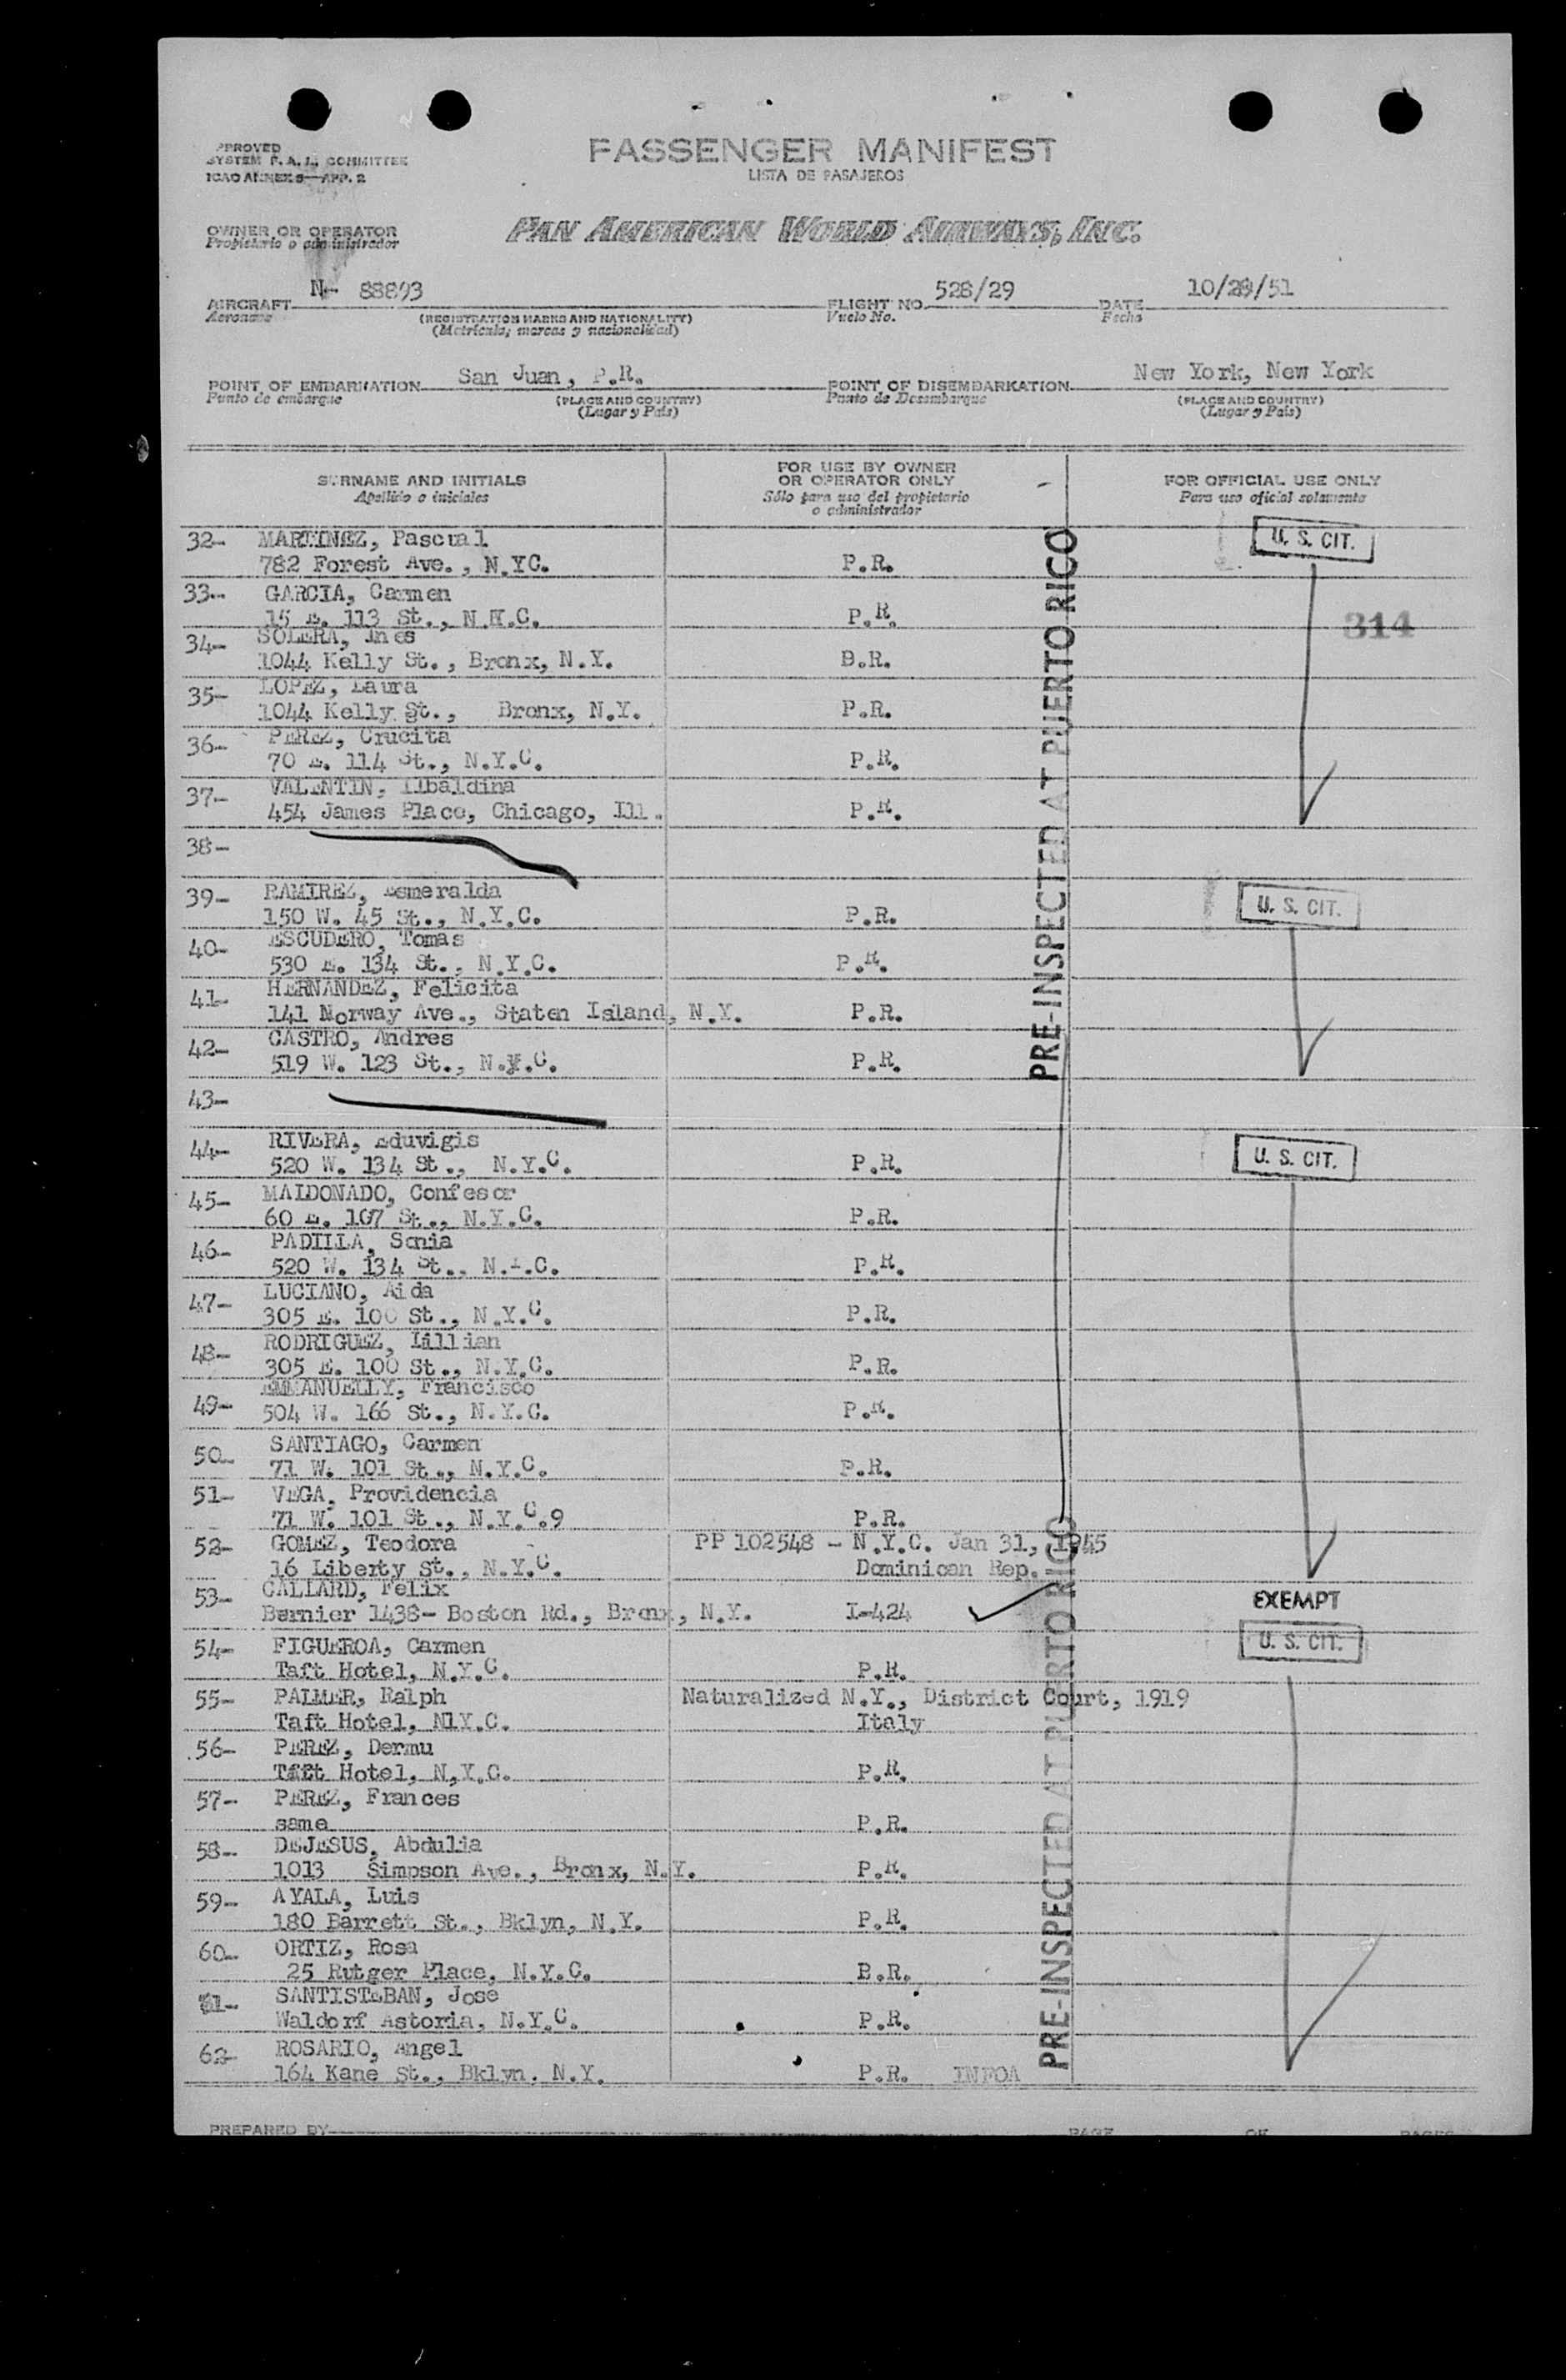 APPROVED
SYSTEM P.A.A. COMMITTEE
ICAO ANNEX 9—APP. 2
PASSENGER MANIFEST
LISTA DE PASAJEROS
OWNER OR OPERATOR
Propietario o administrador
PAN AMERICAN WORLD AIRWAYS, INC.
AIRCRAFT N- 88893 FLIGHT NO. 528/29 DATE 10/29/51
Aeronave (REGISTRATION MARKS AND NATIONALITY) Vuelo No. Fecha
(Matricula, marcas y nacionalidad)
POINT OF EMBARKATION San Juan, P.R. POINT OF DISEMBARKATION New York, New York
Punto de embarque (PLACE AND COUNTRY) Punto de Desembarque (PLACE AND COUNTRY)
(Lugar y País) (Lugar y País)
SURNAME AND INITIALS FOR USE BY OWNER OR OPERATOR ONLY FOR OFFICIAL USE ONLY
Apellido o iniciales Sólo para uso del propietario o administrador Para uso oficial solamente
32- MARTINEZ, Pascual U. S. CIT.
782 Forest Ave., N.YC. P.R.
33- GARCIA, Carmen
15 E. 113 St., N.Y.C. P.R. 314
34- SOLERA, Ines
1044 Kelly St., Bronx, N.Y. B.R.
35- LOPEZ, Laura
1044 Kelly St., Bronx, N.Y. P.R.
36- PEREZ, Crucita
70 E. 114 St., N.Y.C. P.R.
37- VALENTIN,
454 James Place, Chicago, Ill. P.R.
38-
39- RAMIREZ, Esmeralda U. S. CIT.
150 W. 45 St., N.Y.C. P.R.
40- ESCUDERO, Tomas
530 E. 134 St., N.Y.C. P.R.
41- HERNANDEZ, Felicita
141 Norway Ave., Staten Island, N.Y. P.R.
42- CASTRO, Andres
519 W. 123 St., N.Y.C. P.R.
PRE-INSPECTED AT PUERTO RICO
43-
44- RIVERA, Eduvigis U. S. CIT.
520 W. 134 St., N.Y.C. P.R.
45- MALDONADO, Confesor
60 E. 107 St., N.Y.C. P.R.
46- PADILLA, Sonia
520 W. 134 St., N.Y.C. P.R.
47- LUCIANO, Aida
305 E. 100 St., N.Y.C. P.R.
48- RODRIGUEZ, Lillian
305 E. 100 St., N.Y.C. P.R.
49- EMMANUELLY, Francisco
504 W. 166 St., N.Y.C. P.R.
50- SANTIAGO, Carmen
71 W. 101 St., N.Y.C. P.R.
51- VEGA, Providencia
71 W. 101 St., N.Y.C.9 P.R.
52- GOMEZ, Teodora PP 102548 - N.Y.C. Jan 31, 1945
16 Liberty St., N.Y.C. Dominican Rep.
53- GALLARD, Felix EXEMPT
Bernier 1438- Boston Rd., Bronx, N.Y. I-424
54- FIGUEROA, Carmen U. S. CIT.
Taft Hotel, N.Y.C. P.R.
55- PALMER, Ralph Naturalized N.Y., District Court, 1919
Taft Hotel, N1Y.C. Italy
56- PEREZ, Dermu
Taft Hotel, N.Y.C. P.R.
57- PEREZ, Frances
same P.R.
58- DEJESUS, Abdulia
1013 Simpson Ave., Bronx, N.Y. P.R.
59- AYALA, Luis
180 Barrett St., Bklyn, N.Y. P.R.
60- ORTIZ, Rosa
25 Rutger Place, N.Y.C. B.R.
61- SANTISTEBAN, Jose
Waldorf Astoria, N.Y.C. P.R.
62- ROSARIO, Angel
164 Kane St., Bklyn. N.Y. P.R. INFOA
PRE-INSPECTED AT PUERTO RICO
PREPARED BY PAGE OF PAGES